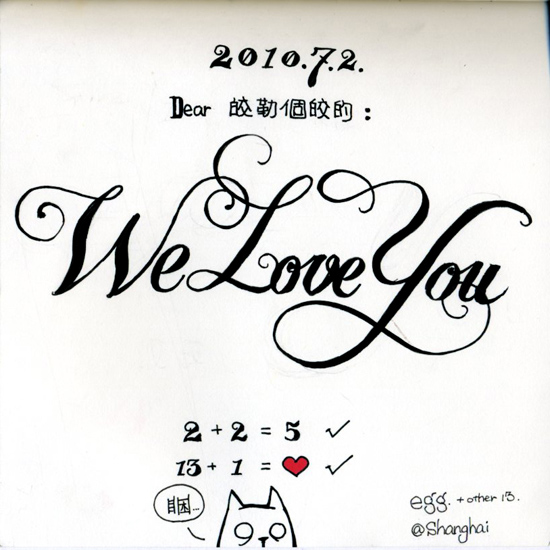 2010.7.2.
Dear 皎勒個皎的：
We Love You
2 + 2 = 5 ✓
13 + 1 = ❤ ✓
睏...
egg. + other 13.
@Shanghai